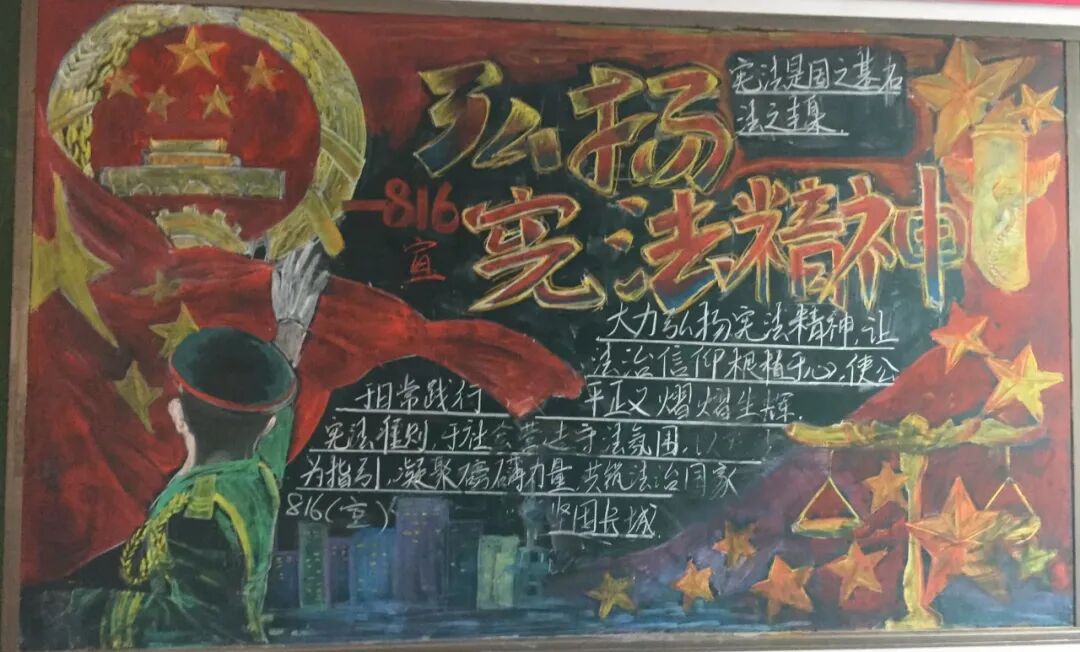 弘扬
宪法精神
宪法是国之基石
法之
—816
宣
大力弘扬宪法精神,让
法治信仰根植于心,使公
平正义熠熠生辉.
于日常践行
宪法准则,于社会营造守法氛围,以
为指引,凝聚磅礴力量,共筑法治国家
坚固长城.
816(宣)